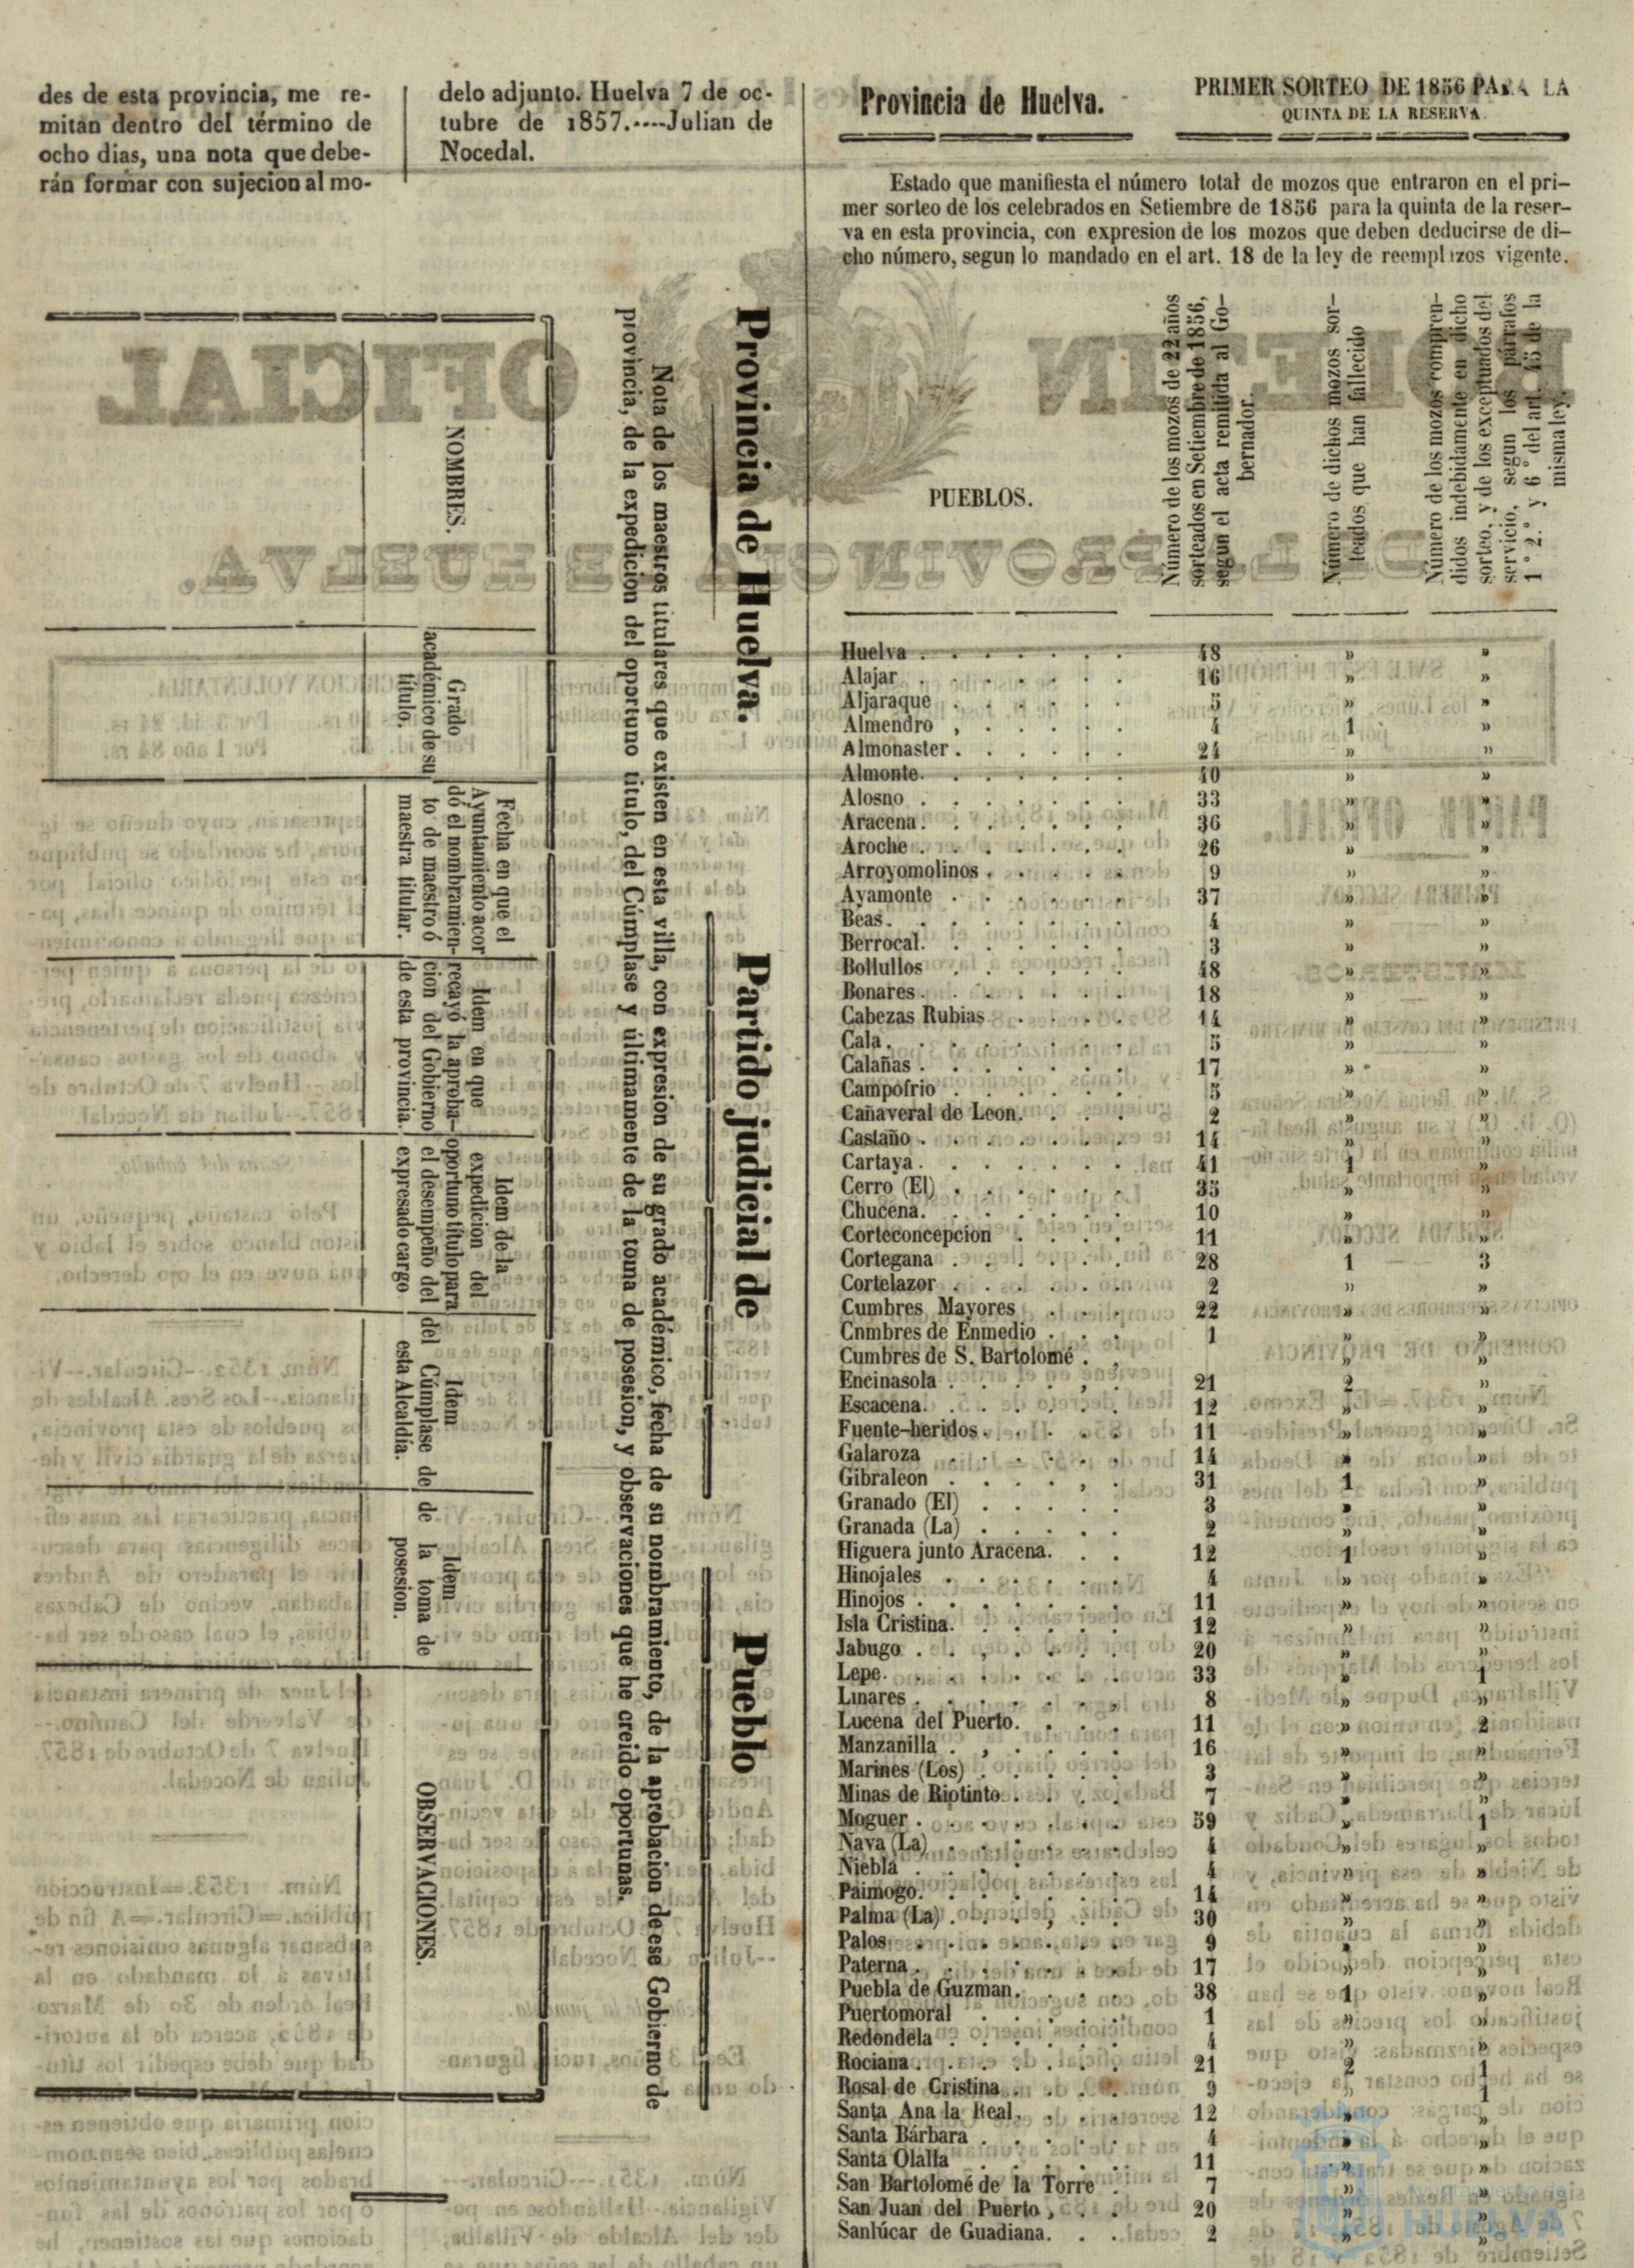 des de esta provincia, me re-
mitan dentro del término de
ocho dias, una nota que debe-
rán formar con sujecion al mo-
delo adjunto. Huelva 7 de oc-
tubre de 1857.----Julian de
Nocedal.
Provincia de Huelva. Partido judicial de Pueblo
Nota de los maestros titulares que existen en esta villa, con expresion de su grado académico, fecha de su nombramiento, de la aprobacion de ese Gobierno de
provincia, de la expedicion del oportuno titulo, del Cúmplase y últimamente de la toma de posesion, y observaciones que he creido oportunas.
NOMBRES.
Grado
académico de su
título.
Fecha en que el
Ayuntamiento acor
dó el nombramien-
to de maestro ó
maestra titular.
Idem en que
recayó la aproba-
cion del Gobierno
de esta provincia.
Idem de la
expedicion del
oportuno título para
el desempeño del
expresado cargo
Idem
del Cúmplase de
esta Alcaldía.
Idem
de la toma de
posesion.
OBSERVACIONES.
Provincia de Huelva.
PRIMER SORTEO DE 1856 PARA LA
QUINTA DE LA RESERVA.
Estado que manifiesta el número total de mozos que entraron en el pri-
mer sorteo de los celebrados en Setiembre de 1856 para la quinta de la reser-
va en esta provincia, con expresion de los mozos que deben deducirse de di-
cho número, segun lo mandado en el art. 18 de la ley de reemplazos vigente.
PUEBLOS.
Número de los mozos de 22 años
sorteados en Setiembre de 1856,
segun el acta remitida al Go-
bernador.
Número de dichos mozos sor-
teados que han fallecido
Número de los mozos compren-
didos indebidamente en dicho
sorteo, y de los exceptuados del
servicio, segun los párrafos
1.° 2.° y 6.° del art. 45 de la
misma ley.
Huelva . . . . . . . 48 » »
Alajar . . . . . . . 16 » »
Aljaraque . . . . . . 5 » »
Almendro , . . . . . 4 1 »
Almonaster . . . . . . 24 » »
Almonte. . . . . . . 40 » »
Alosno . . . . . . . 33 » »
Aracena. . . . . . . 36 » »
Aroche . . . . . . . 26 » »
Arroyomolinos . . . . . 9 » »
Ayamonte . . . . . . 37 » »
Beas. . . . . . . . 4 » »
Berrocal. . . . . . . 3 » »
Bollullos . . . . . . 48 » »
Bonares . . . . . . . 18 » »
Cabezas Rubias . . . . 14 » »
Cala. . . . . . . . 5 » »
Calañas . . . . . . . 17 » »
Campofrio . . . . . . 5 » »
Cañaveral de Leon. . . . 2 » »
Castaño . . . . . . . 14 » »
Cartaya. . . . . . . 41 1 »
Cerro (El) . . . . . . 35 » »
Chucena. . . . . . . 10 » »
Corteconcepcion . . . . 11 » »
Cortegana . . . . . . 28 1 3
Cortelazor . . . . . . 2 » »
Cumbres Mayores . . . . 22 » »
Cnmbres de Enmedio . . . 1 » »
Cumbres de S. Bartolomé . , » »
Encinasola . . . . , . 21 2 »
Escacena. . . . . . . 12 » »
Fuente-heridos . . . . . 11 » »
Galaroza . . . . . . 14 » »
Gibraleon . . . . , . 31 1 »
Granado (El) . . . . . 3 » »
Granada (La) . . . . . 2 » »
Higuera junto Aracena. . . 12 1 »
Hinojales . . . . . . 4 » »
Hinojos . . . . . . . 11 » »
Isla Cristina. . . . . . 12 » »
Jabugo . . . , . . . 20 » »
Lepe. . . . . . . . 33 » 1
Linares . . . . . . . 8 » »
Lucena del Puerto. . . . 11 » 2
Manzanilla . , . . . . 16 » »
Marines (Los) . . . . . 3 » »
Minas de Riotinto . . . . 7 » »
Moguer . . . . . . . 59 » 1
Nava (La) . . . . . . 4 » »
Niebla . . . . . . . 4 » »
Paimogo. . . . . . . 14 » »
Palma (La) . . . . . . 30 » »
Palos . . . . . . . 9 » »
Paterna . . . . . . . 17 » »
Puebla de Guzman. . . . 38 1 »
Puertomoral . . . . . 1 » »
Redondela . . . . . . 4 » »
Rociana . . . . . . . 21 2 1
Rosal de Cristina . . . . 9 » 1
Santa Ana la Real. . . . 12 » »
Santa Bárbara . . . . . 4 » »
Santa Olalla . . . . . 11 » »
San Bartolomé de la Torre . 7 » »
San Juan del Puerto , . . 20 » »
Sanlúcar de Guadiana. . . 2 » »
HUELVA